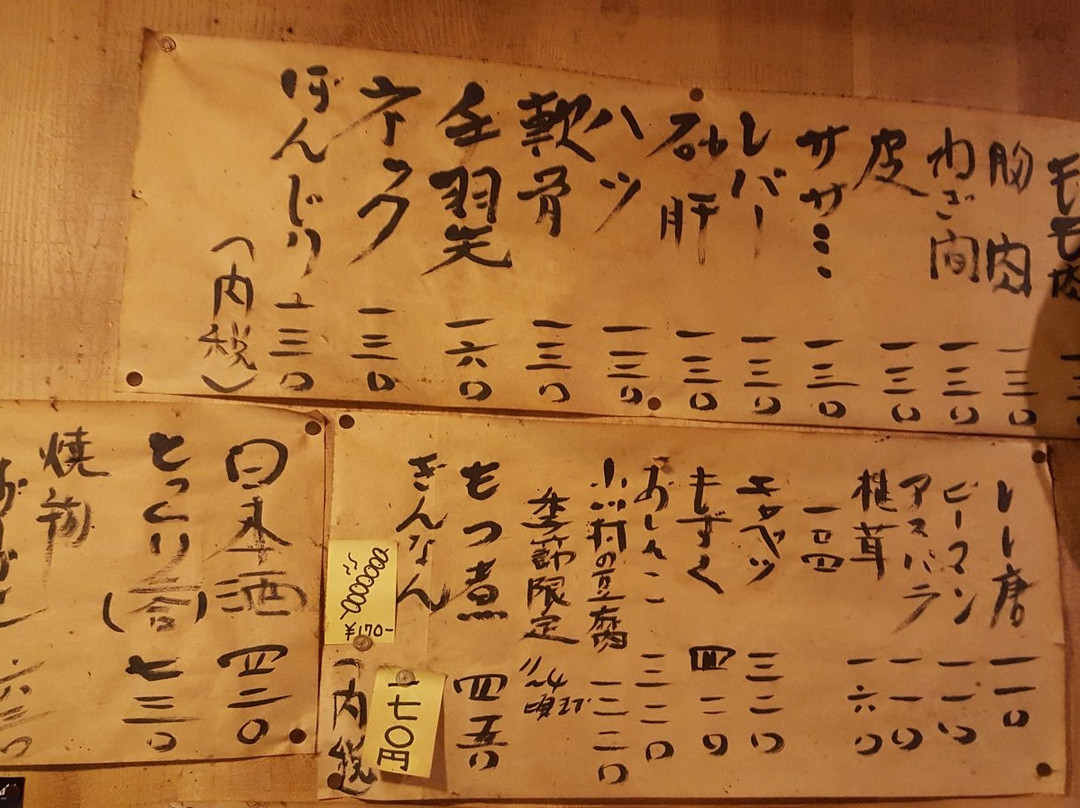 モモ肉 一三〇
胸肉 一三〇
わき間 一三〇
皮 一三〇
ササミ 一三〇
レバー 一三〇
砂肝 一三〇
ハツ 一三〇
軟骨 一三〇
手羽先 一六〇
ネック 一三〇
ぼんじり 一三〇
(内税)
しし唐 一一〇
ピーマン 一一〇
アスパラ 一一〇
椎茸 一六〇
キャベツ 三二〇
もずく 四二〇
おしんこ 三二〇
小川村の豆腐 三二〇
季節限定 11〜4頃まで
もつ煮 四五〇
ぎんなん
一七〇円
¥170-
(内税
日本酒 四二〇
とっくり(二合) 七三〇
焼酎